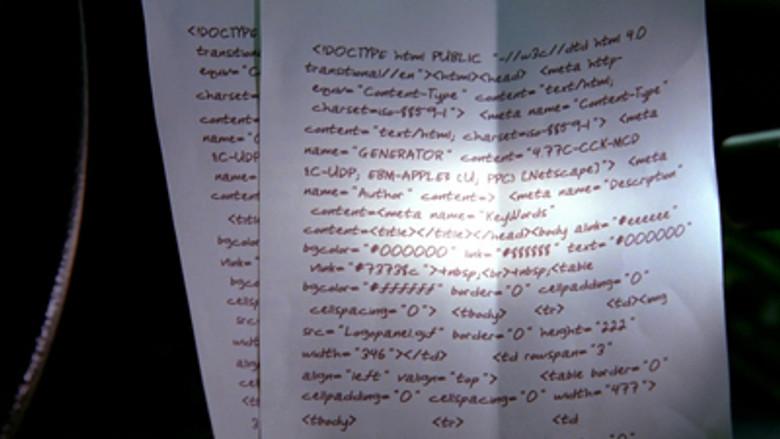 <!DOCTYPE
<!DOCTYPE html PUBLIC "-//w3c//dtd html 4.0
transitional//en"><html><head> <meta http-
equiv="Content-Type" content="text/html;
charset=iso-8859-1"> <meta name="Content-Type"
content="text/html; charset=iso-8859-1"> <meta
name="GENERATOR" content="4.77C-CCK-MCD
{C-UDP; EBM-APPLE} (U; PPC) [Netscape]"> <meta
name="Author" content=> <meta name="Description"
content=<meta name="KeyWords"
content=<title></title></head><body alink="#eeeeee"
bgcolor="#000000" link="#ffffff" text="#000000"
vlink="#73738c">+nbsp;<br>+nbsp;<table
bgcolor="#ffffff" border="0" cellpadding="0"
cellspacing="0"> <tbody> <tr> <td><img
src="Logopanel.gif" border="0" height="222"
width="346"></td> <td rowspan="3"
align="left" valign="top"> <table border="0"
cellpadding="0" cellspacing="0" width="477">
<tbody> <tr> <td